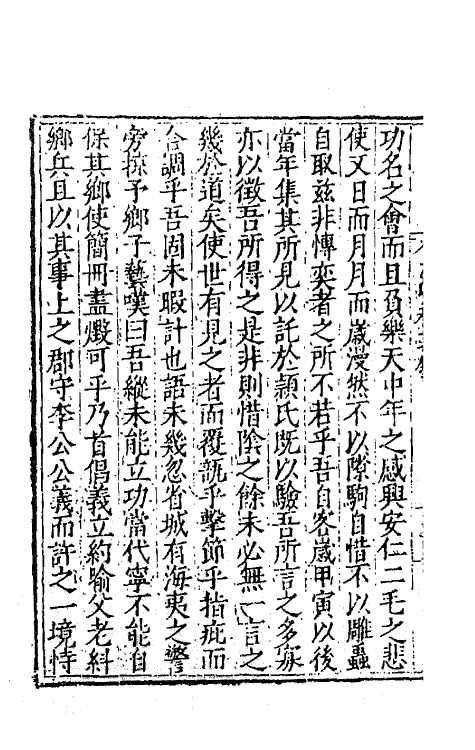 功名之會而且負樂天中年之感興安仁二毛之悲
使又日而月月而歲漫然不以隙駒自惜不以雕蟲
自取兹非慱奕者之所不若乎吾自客歲甲寅以後
當年集其所見以託於頴氏既以驗吾所言之多寡
亦以徵吾所得之是非則惜陰之餘未必無一言之
幾於道矣使世有見之者而覆瓿乎擊節乎指疵而
合調乎吾固未暇計也語未幾忽省城有海夷之警
旁掠予鄉子藝嘆曰吾縱未能立功當代寧不能自
保其鄉使簡冊盡燬可乎乃首倡義立約喻父老糾
鄉兵且以其事上之郡守李公公義而許之一境恃